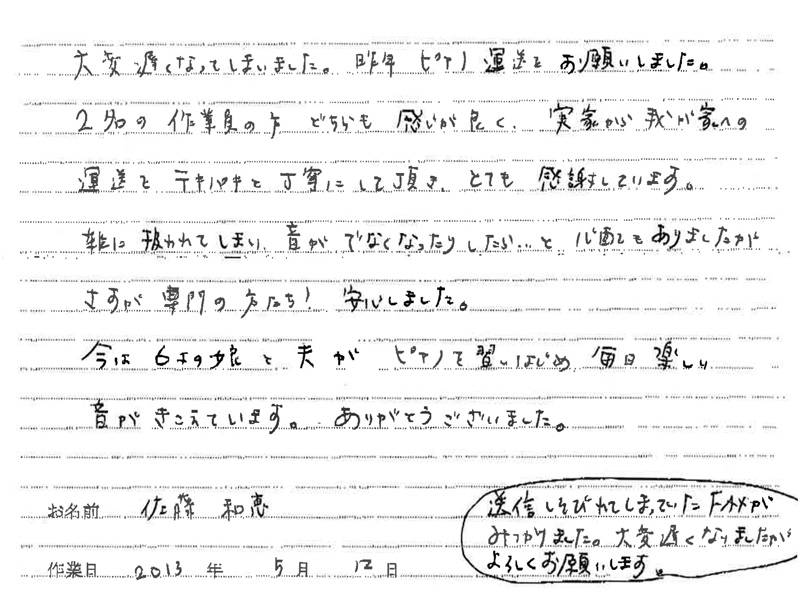 大変遅くなってしまいました。昨年 ピアノ運送を お願いしました。
2名の作業員の方 どちらも 感じが良く、実家から我が家への
運送を テキパキと丁寧にして頂き、とても 感謝しています。
雑に扱われてしまい、音が でなくなったりしたら…と 心配もありましたが
さすが 専門の方たち! 安心しました。
今は 6才の娘と夫が ピアノを習いはじめ 毎日楽しい
音がきこえています。ありがとうございました。
お名前 佐藤 和恵
作業日 2013 年 5 月 12 日
送信しそびれてしまっていたFAXが
みつかりました。大変遅くなりましたが
よろしくお願いします。